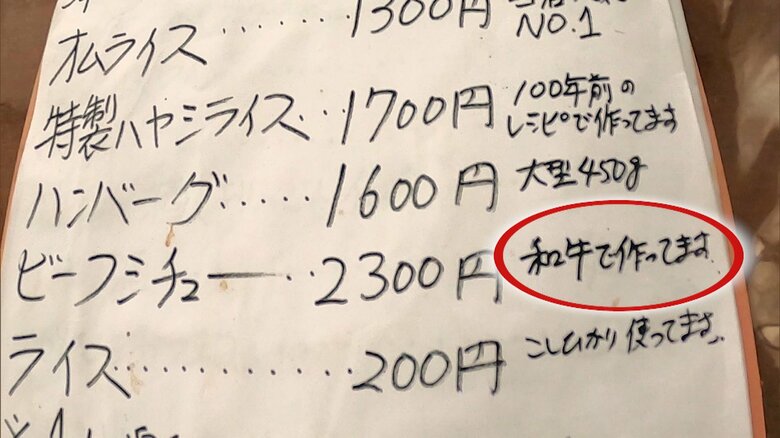 1300円
NO.1
オムライス
特製ハヤシライス・・・1700円 100年前の
レシピで作ってます
ハンバーグ・・・・・・1600円 大型450g
ビーフシチュー・・2300円 和牛で作ってます
ライス・・・・・・・・・・・・200円 こしひかり使ってます。